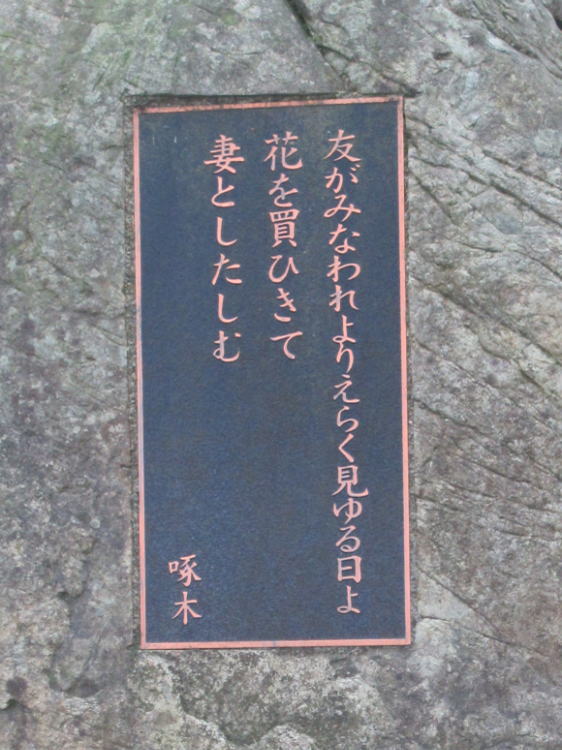 友がみなわれよりえらく見ゆる日よ
花を買ひきて
妻としたしむ
啄木